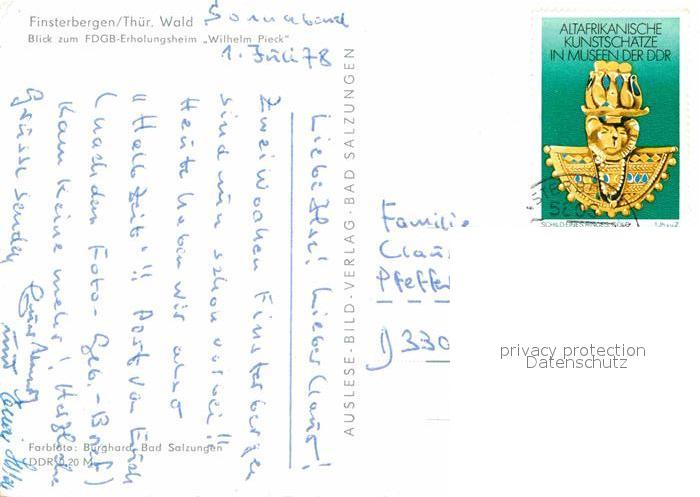 Finsterbergen/Thür. Wald
Blick zum FDGB-Erholungsheim „Wilhelm Pieck"
Sonnabend
1. Juli 78
Liebe Ilse! Lieber Claus!
Zwei Wochen Finsterbergen
sind nun schon vorbei!!
Heute haben wir also
"Halbzeit"!! Post von Euch
(nach dem Foto-Geb.-Brief)
kam keine mehr! Herzliche
Grüsse senden
Euch
und
Farbfoto: Burghard, Bad Salzungen
DDR 0,20 M
AUSLESE-BILD-VERLAG · BAD SALZUNGEN
ALTAFRIKANISCHE
KUNSTSCHÄTZE
IN MUSEEN DER DDR
SCHILD EINES RINGES, GOLD
Familie
Claus
Pfeffer
330
privacy protection
Datenschutz